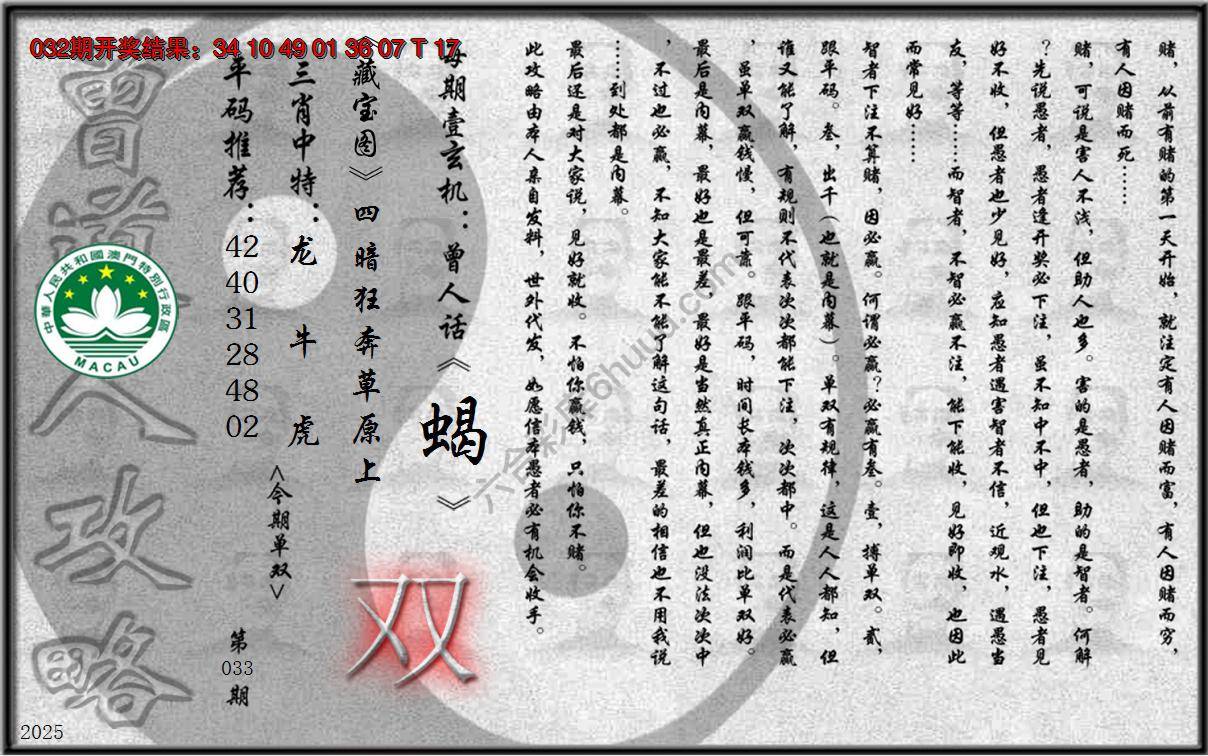 032期开奖结果：34 10 49 01 36 07 T 17
赌，从前有赌的第一天开始，就注定有人因赌而富，有人因赌而穷，
有人因赌而死……
赌，可说是害人不浅，但助人也多。害的是愚者，助的是智者。何解
？先说愚者，愚者逢开奖必下注，虽不知中不中，但也下注，愚者见
好不收，但愚者也少见好，应知愚者遇害智者不信，近观水，遇愚当
友，等等……而智者，不智必赢不注，能下能收，见好即收，也因此
而常见好……
智者下注不算赌，因必赢。何谓必赢？必赢有叁。壹，搏单双。贰，
跟平码。叁，出千（也就是内幕）。单双有规律，这是人人都知，但
谁又能了解，有规则不代表次次都能下注，次次都中。而是代表必赢
，虽单双赢钱慢，但可靠。跟平码，时间长本钱多，利润比单双好。
最后是内幕，最好也是最差，最好是当然真正内幕，但也没法次次中
，不过也必赢，不知大家能不能了解这句话，最差的相信也不用我说
……到处都是内幕。
最后还是对大家说，见好就收。不怕你赢钱，只怕你不赌。
此攻略由本人亲自发料，世外代发，如愿信本愚者必有机会收手。
每期壹玄机：曾人话《蝎》
《藏宝图》四暗狂奔草原上
双
三肖中特：龙 牛 虎
<今期单双>
平码推荐：
42
40
31
28
48
02
第
033
期
曾道人攻略
中華人民共和國澳門特別行政區
MACAU
2025
六合彩库6huuu.com